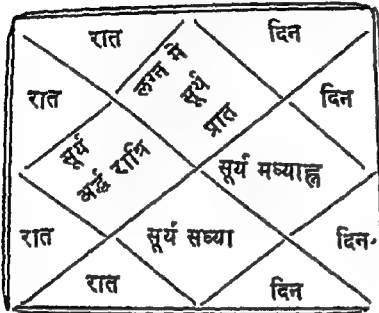 रात
दिन
लग्न मे
सूर्य
प्रात
रात
दिन
सूर्य
अर्द्ध रात्रि
सूर्य मध्याह्न
रात
सूर्य सध्या
दिन
रात
दिन